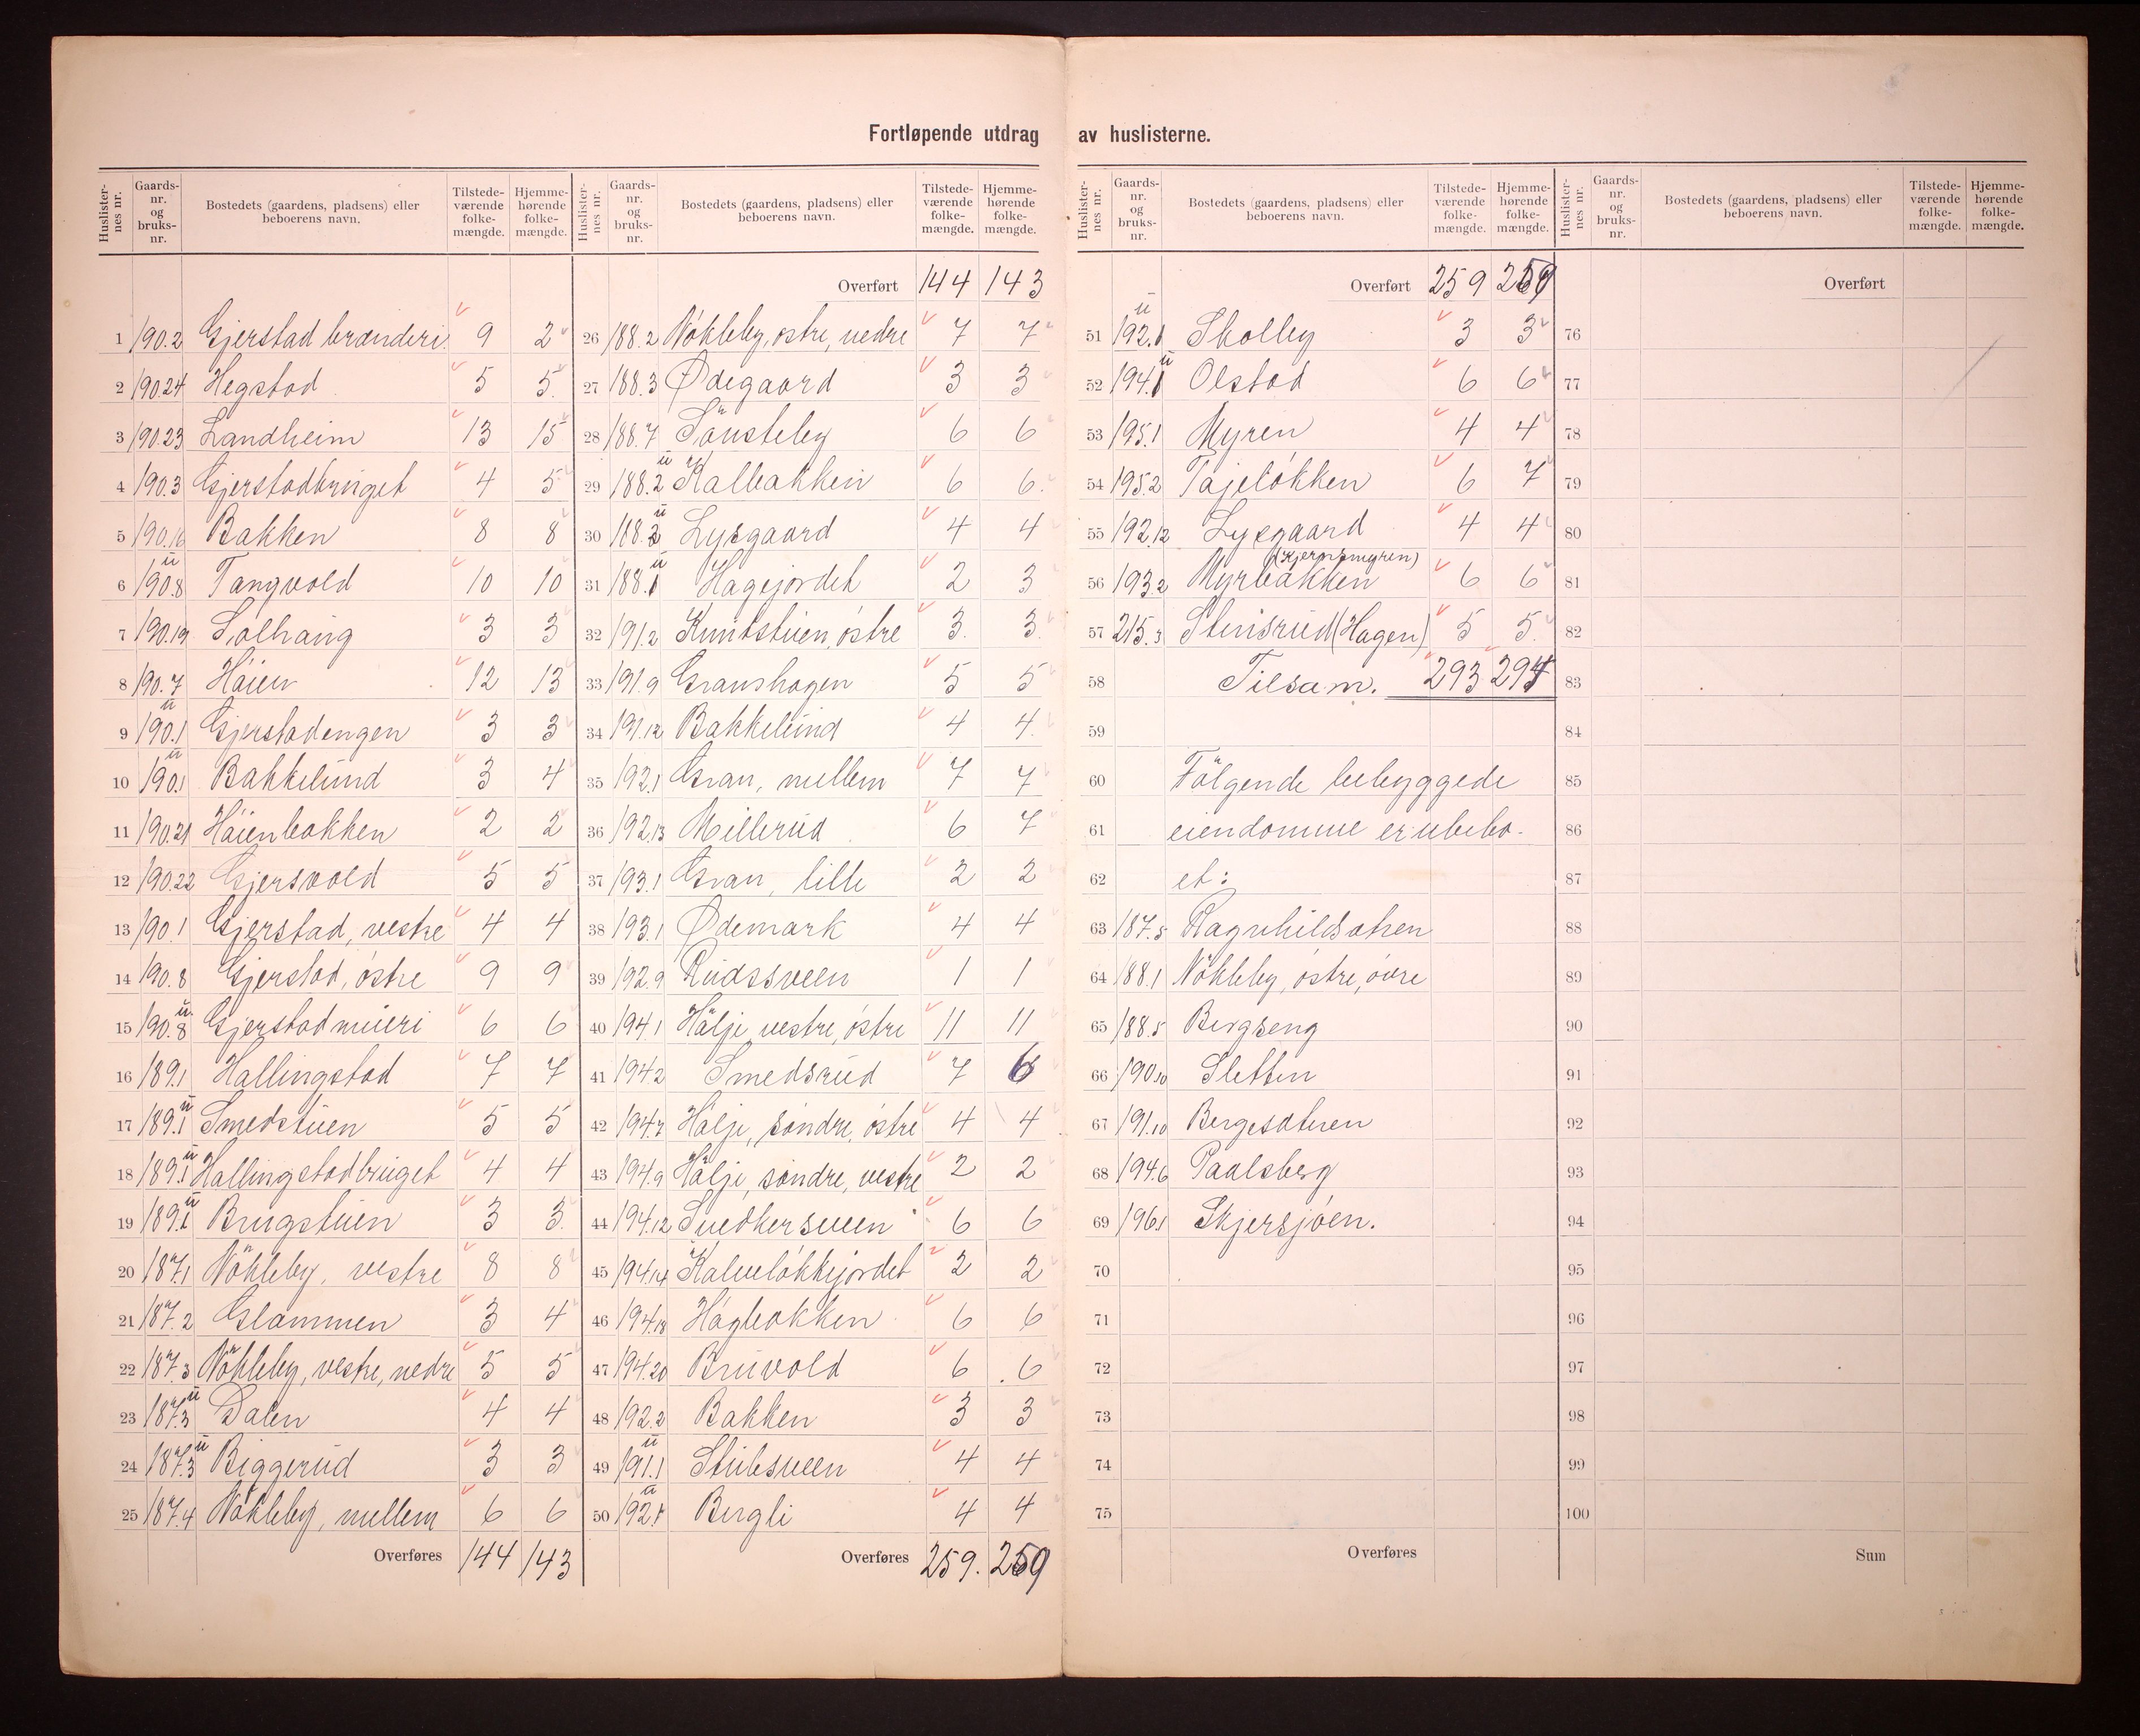 Fortløpende utdrag av huslisterne.
Huslisternes nr. Gaards-nr. og bruks-nr. Bostedets (gaardens, pladsens) eller beboerens navn. Tilstede-værende folke-mængde. Hjemme-hørende folke-mængde.
1 190.2 Gjerstad brænderi. 9 2
2 190.24 Hegstad 5 5.
3 190.23 Landheim 13 15
4 190.3 Gjerstadbruget 4 5
5 190.16 Bakken 8 8
6 190.8 u Tangvold 10 10
7 190.19 Solhaug 3 3
8 190.7 Haien 12 13
9 190.1 u Gjerstadengen 3 3
10 190.1 u Bakkelund 3 4
11 190.21 Haienbakken 2 2
12 190.22 Gjersvold 5 5
13 190.1 Gjerstad, vestre 4 4
14 190.8 Gjerstad, östre 9 9
15 190.8 u. Gjerstad meieri 6 6
16 189.1 Hallingstad 7 7
17 189.1 u Smedstuen 5 5
18 189.1 u Hallingstadbruget 4 4
19 189.1 u Brugstuen 3 3.
20 187.1 Nökleby, vestre 8 8
21 187.2 Glammen 3 4
22 187.3 Nökleby, vestre, nedre 5 5
23 187.3 u Dalen 4 4
24 187.3 u Biggerud 3 3
25 187.4 Nökleby, mellem 6 6
Overføres 144 143
Huslisternes nr. Gaards-nr. og bruks-nr. Bostedets (gaardens, pladsens) eller beboerens navn. Tilstede-værende folke-mængde. Hjemme-hørende folke-mængde.
Overført 144 143
26 188.2 Nökleby, östre, nedre 7 7
27 188.3 Ødegaard 3 3
28 188.7 Sönsteby 6 6
29 188.2 u Kalbakken 6 6.
30 188.2 u Lysgaard 4 4
31 188.1 u Hagejordet 2 3
32 191.2 Kuntstuen, östre 3. 3.
33 191.9 Granshagen 5 5
34 191.12 Bakkelund 4 4.
35 192.1 Gran, mellem 7 7
36 192.13 Millerud 6 7
37 193.1 Gran, lille 2 2
38 193.1 Ødemark 4 4
39 192.9 Rudssveen 1 1
40 194.1 Hälje vestre, östre 11 11
41 194.2 Smedsrud 7 6
42 194.7 Hälje, söndre, östre 4 4
43 194.9 Hälje, söndre, vestre 2 2
44 194.12 Snedkersveen 6 6
45 194.14 Kalvelökkjordet 2 2
46 194.18 Hagbakken 6 6
47 194.20 Bruvold 6 6
48 192.2 Bakken 3 3
49 191.1 u Stubsveen 4 4
50 192.1 u Bergli 4 4
Overføres 259. 259
Huslisternes nr. Gaards-nr. og bruks-nr. Bostedets (gaardens, pladsens) eller beboerens navn. Tilstede-værende folke-mængde. Hjemme-hørende folke-mængde.
Overført 259 259
51 192.1 u Skolley 3 3
52 194.1 u Olstad 6 6
53 195.1 Myren 4 4
54 195.2 Tajelökken 6 7
55 192.12 Lysgaard 4 4
56 193.2 Myrbakken (Kjernsmyren) 6 6
57 215.3 Stensrud (Hagen) 5 5.
58 Tilsam. 293 294
59
60 Fölgende bebyggede
61 eiendomme er ubebo-
62 et:
63 187.5 Ragnhildsætren
64 188.1 Nökleby, östre, övre
65 188.5 Bergseng
66 190.10 Sletten
67 191.10 Bergesæteren
68 194.6 Paalsberg
69 196.1 Skjersjöen.
70
71
72
73
74
75
Overføres
Huslisternes nr. Gaards-nr. og bruks-nr. Bostedets (gaardens, pladsens) eller beboerens navn. Tilstede-værende folke-mængde. Hjemme-hørende folke-mængde.
Overført
76
77
78
79
80
81
82
83
84
85
86
87
88
89
90
91
92
93
94
95
96
97
98
99
100
Sum